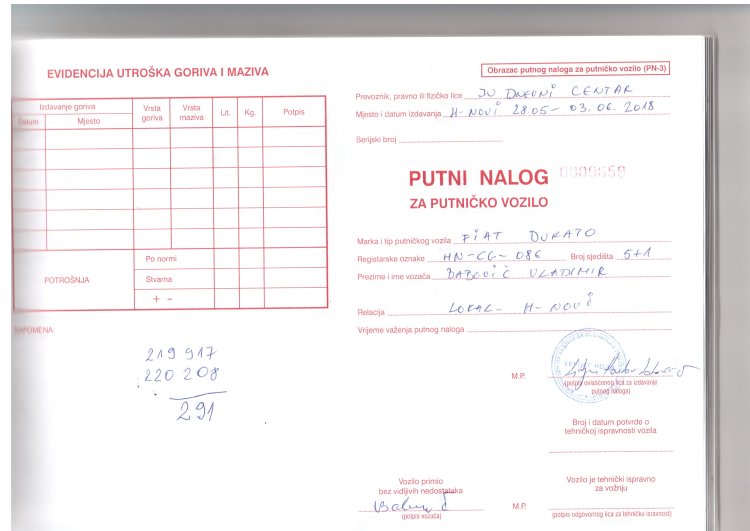 EVIDENCIJA UTROŠKA GORIVA I MAZIVA
Izdavanje goriva
Datum
Mjesto
Vrsta goriva
Vrsta maziva
Lit.
Kg.
Potpis
POTROŠNJA
Po normi
Stvarna
+ -
NAPOMENA:
219 917
220 208
291
Obrazac putnog naloga za putničko vozilo (PN-3)
Prevoznik, pravno ili fizičko lice JU DNEVNI CENTAR
Mjesto i datum izdavanja H-NOVI 28.05- 03.06.2018
Serijski broj
PUTNI NALOG 0000059
ZA PUTNIČKO VOZILO
Marka i tip putničkog vozila FIAT DUKATO
Registarske oznake HN-CG-086 Broj sjedišta 5+1
Prezime i ime vozača BABOVIĆ VLADIMIR
Relacija LOKAL- H-NOVI
Vrijeme važenja putnog naloga
M.P.
(potpis ovlašćenog lica za izdavanje
putnog naloga)
Broj i datum potvrde o
tehničkoj ispravnosti vozila
Vozilo primio
bez vidljivih nedostataka
(potpis vozača)
Vozilo je tehnički ispravno
za vožnju
M.P.
(potpis odgovornog lica za tehničku isravnost)